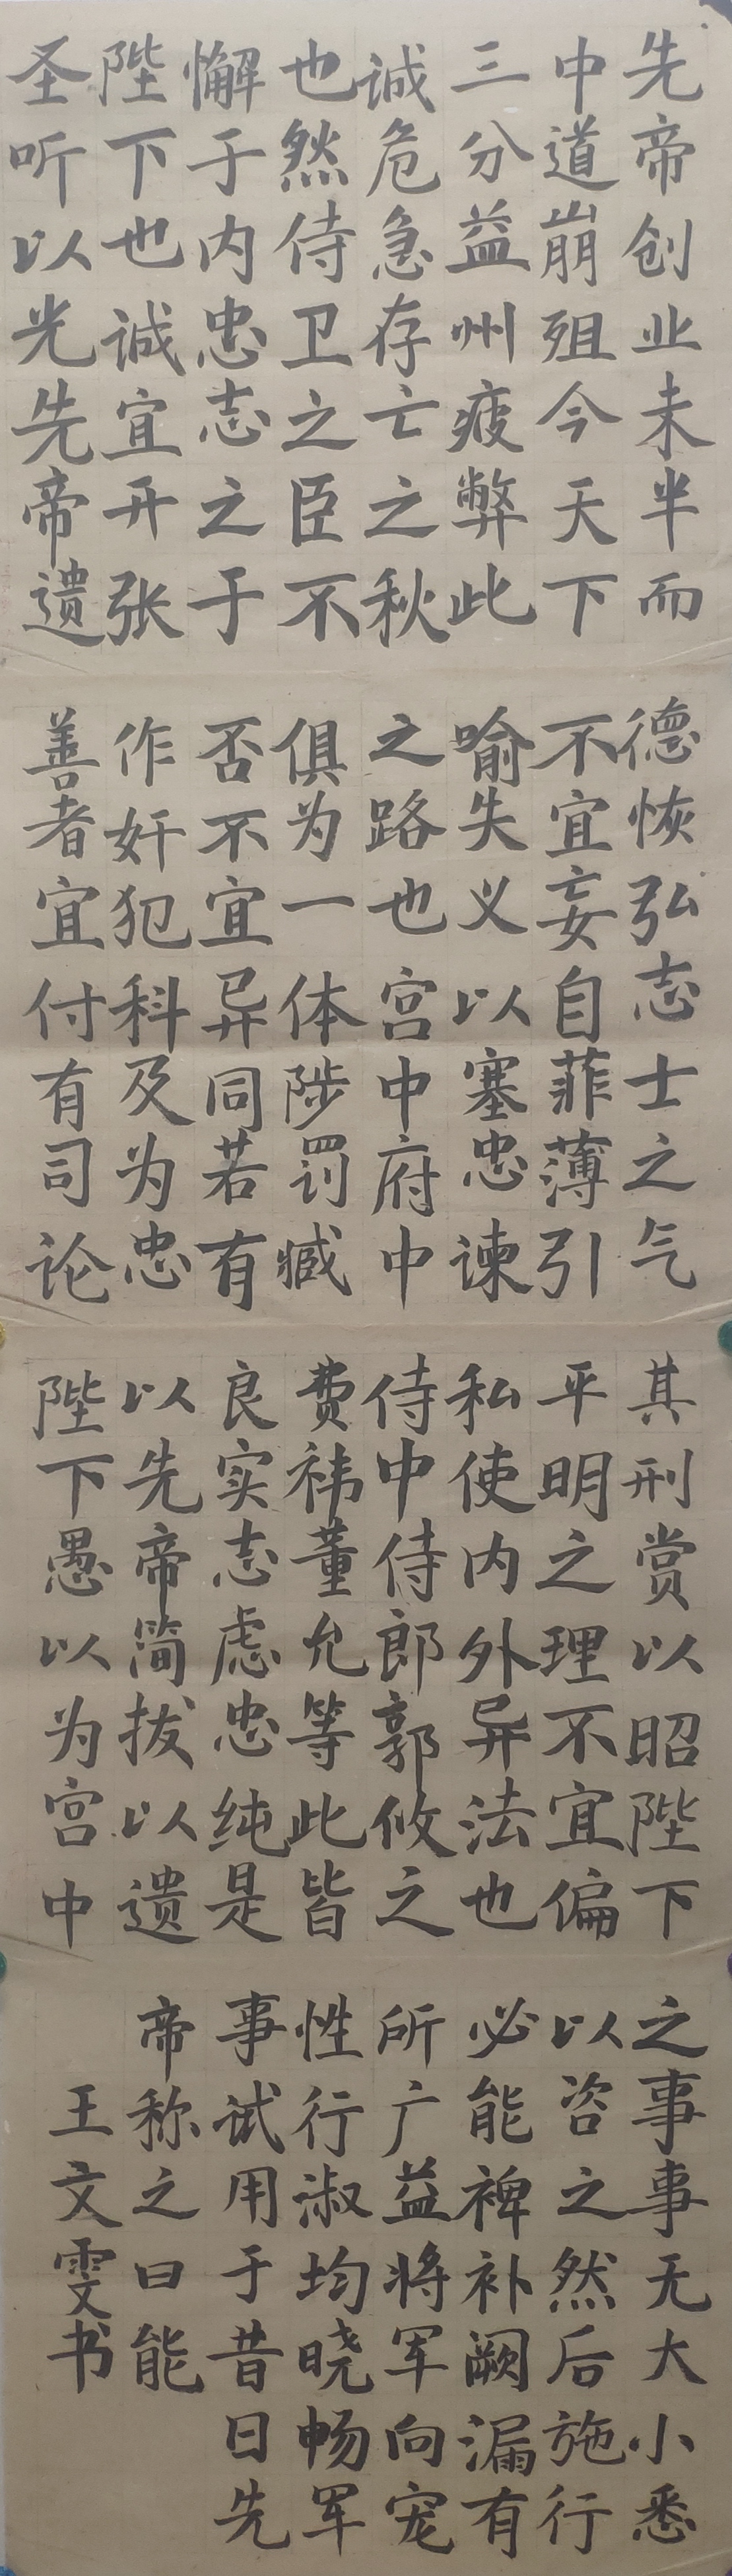 先帝创业未半而
中道崩殂今天下
三分益州疲弊此
诚危急存亡之秋
也然侍卫之臣不
懈于内忠志之于
陛下也诚宜开张
圣听以光先帝遗
德恢弘志士之气
不宜妄自菲薄引
喻失义以塞忠谏
之路也宫中府中
俱为一体陟罚臧
否不宜异同若有
作奸犯科及为忠
善者宜付有司论
其刑赏以昭陛下
平明之理不宜偏
私使内外异法也
侍中侍郎郭攸之
费祎董允等此皆
良实志虑忠纯是
以先帝简拔以遗
陛下愚以为宫中
之事事无大小悉
以咨之然后施行
必能裨补阙漏有
所广益将军向宠
性行淑均晓畅军
事试用于昔日先
帝称之曰能
王文雯书